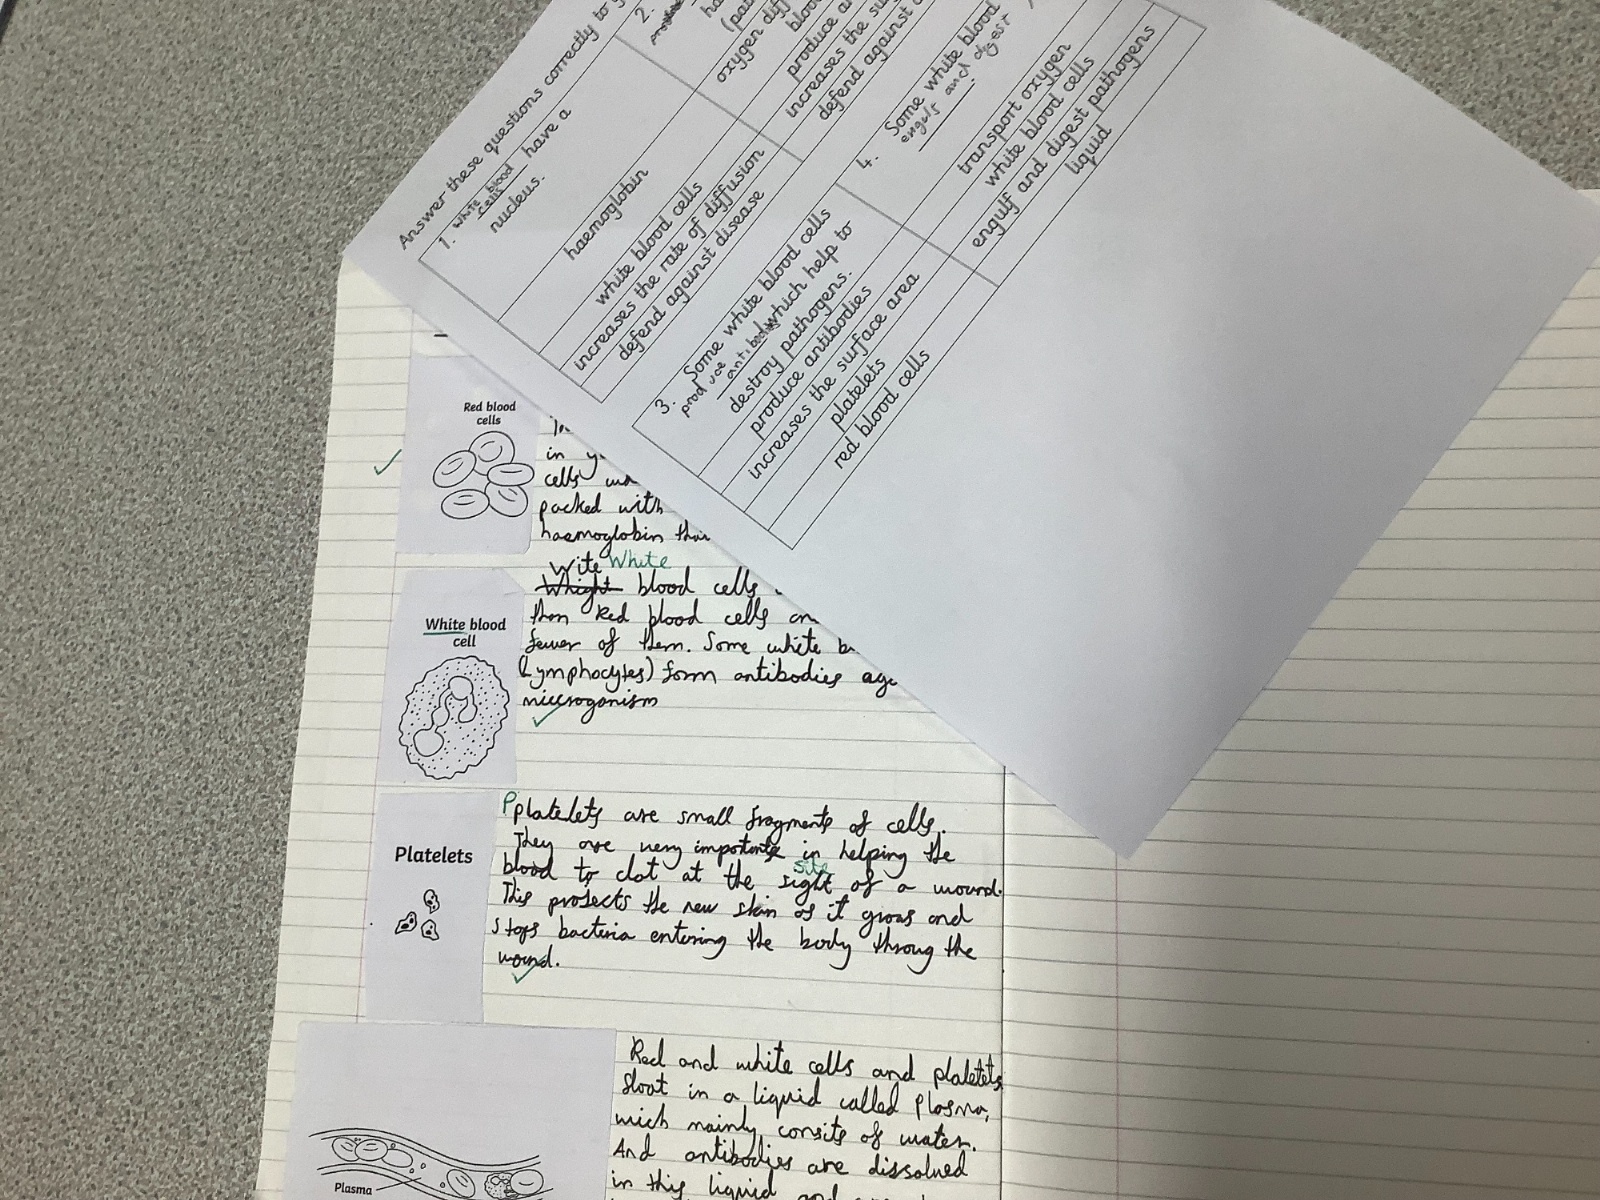 Answer these questions correctly to
1. white blood
cells have a
nucleus.
haemoglobin
white blood cells
increases the rate of diffusion
defend against disease
2.
oxygen
blood
produce
increases the
defend against
3. Some white blood cells
produce antibodies which help to
destroy pathogens.
produce antibodies
increases the surface area
platelets
red blood cells
4. Some white blood
engulf and digest
transport oxygen
white blood cells
engulf and digest pathogens
liquid
Red blood
cells
in
cells
packed with
haemoglobin
Wite White
Whight blood cells
then Red blood cells
fewer of them. Some white
(Lymphocytes) form antibodies
White blood
cell
P platelets are small fragments of cells.
They are very in helping the
site
blood to clot at the sight of a wound.
This protects the new skin as it grows and
stops bacteria entering the body throug the
wound.
Platelets
Red and white cells and platelets
float in a liquid called plasma,
wich mainly consits of water.
And antibodies are dissolved
in this liquid and
Plasma